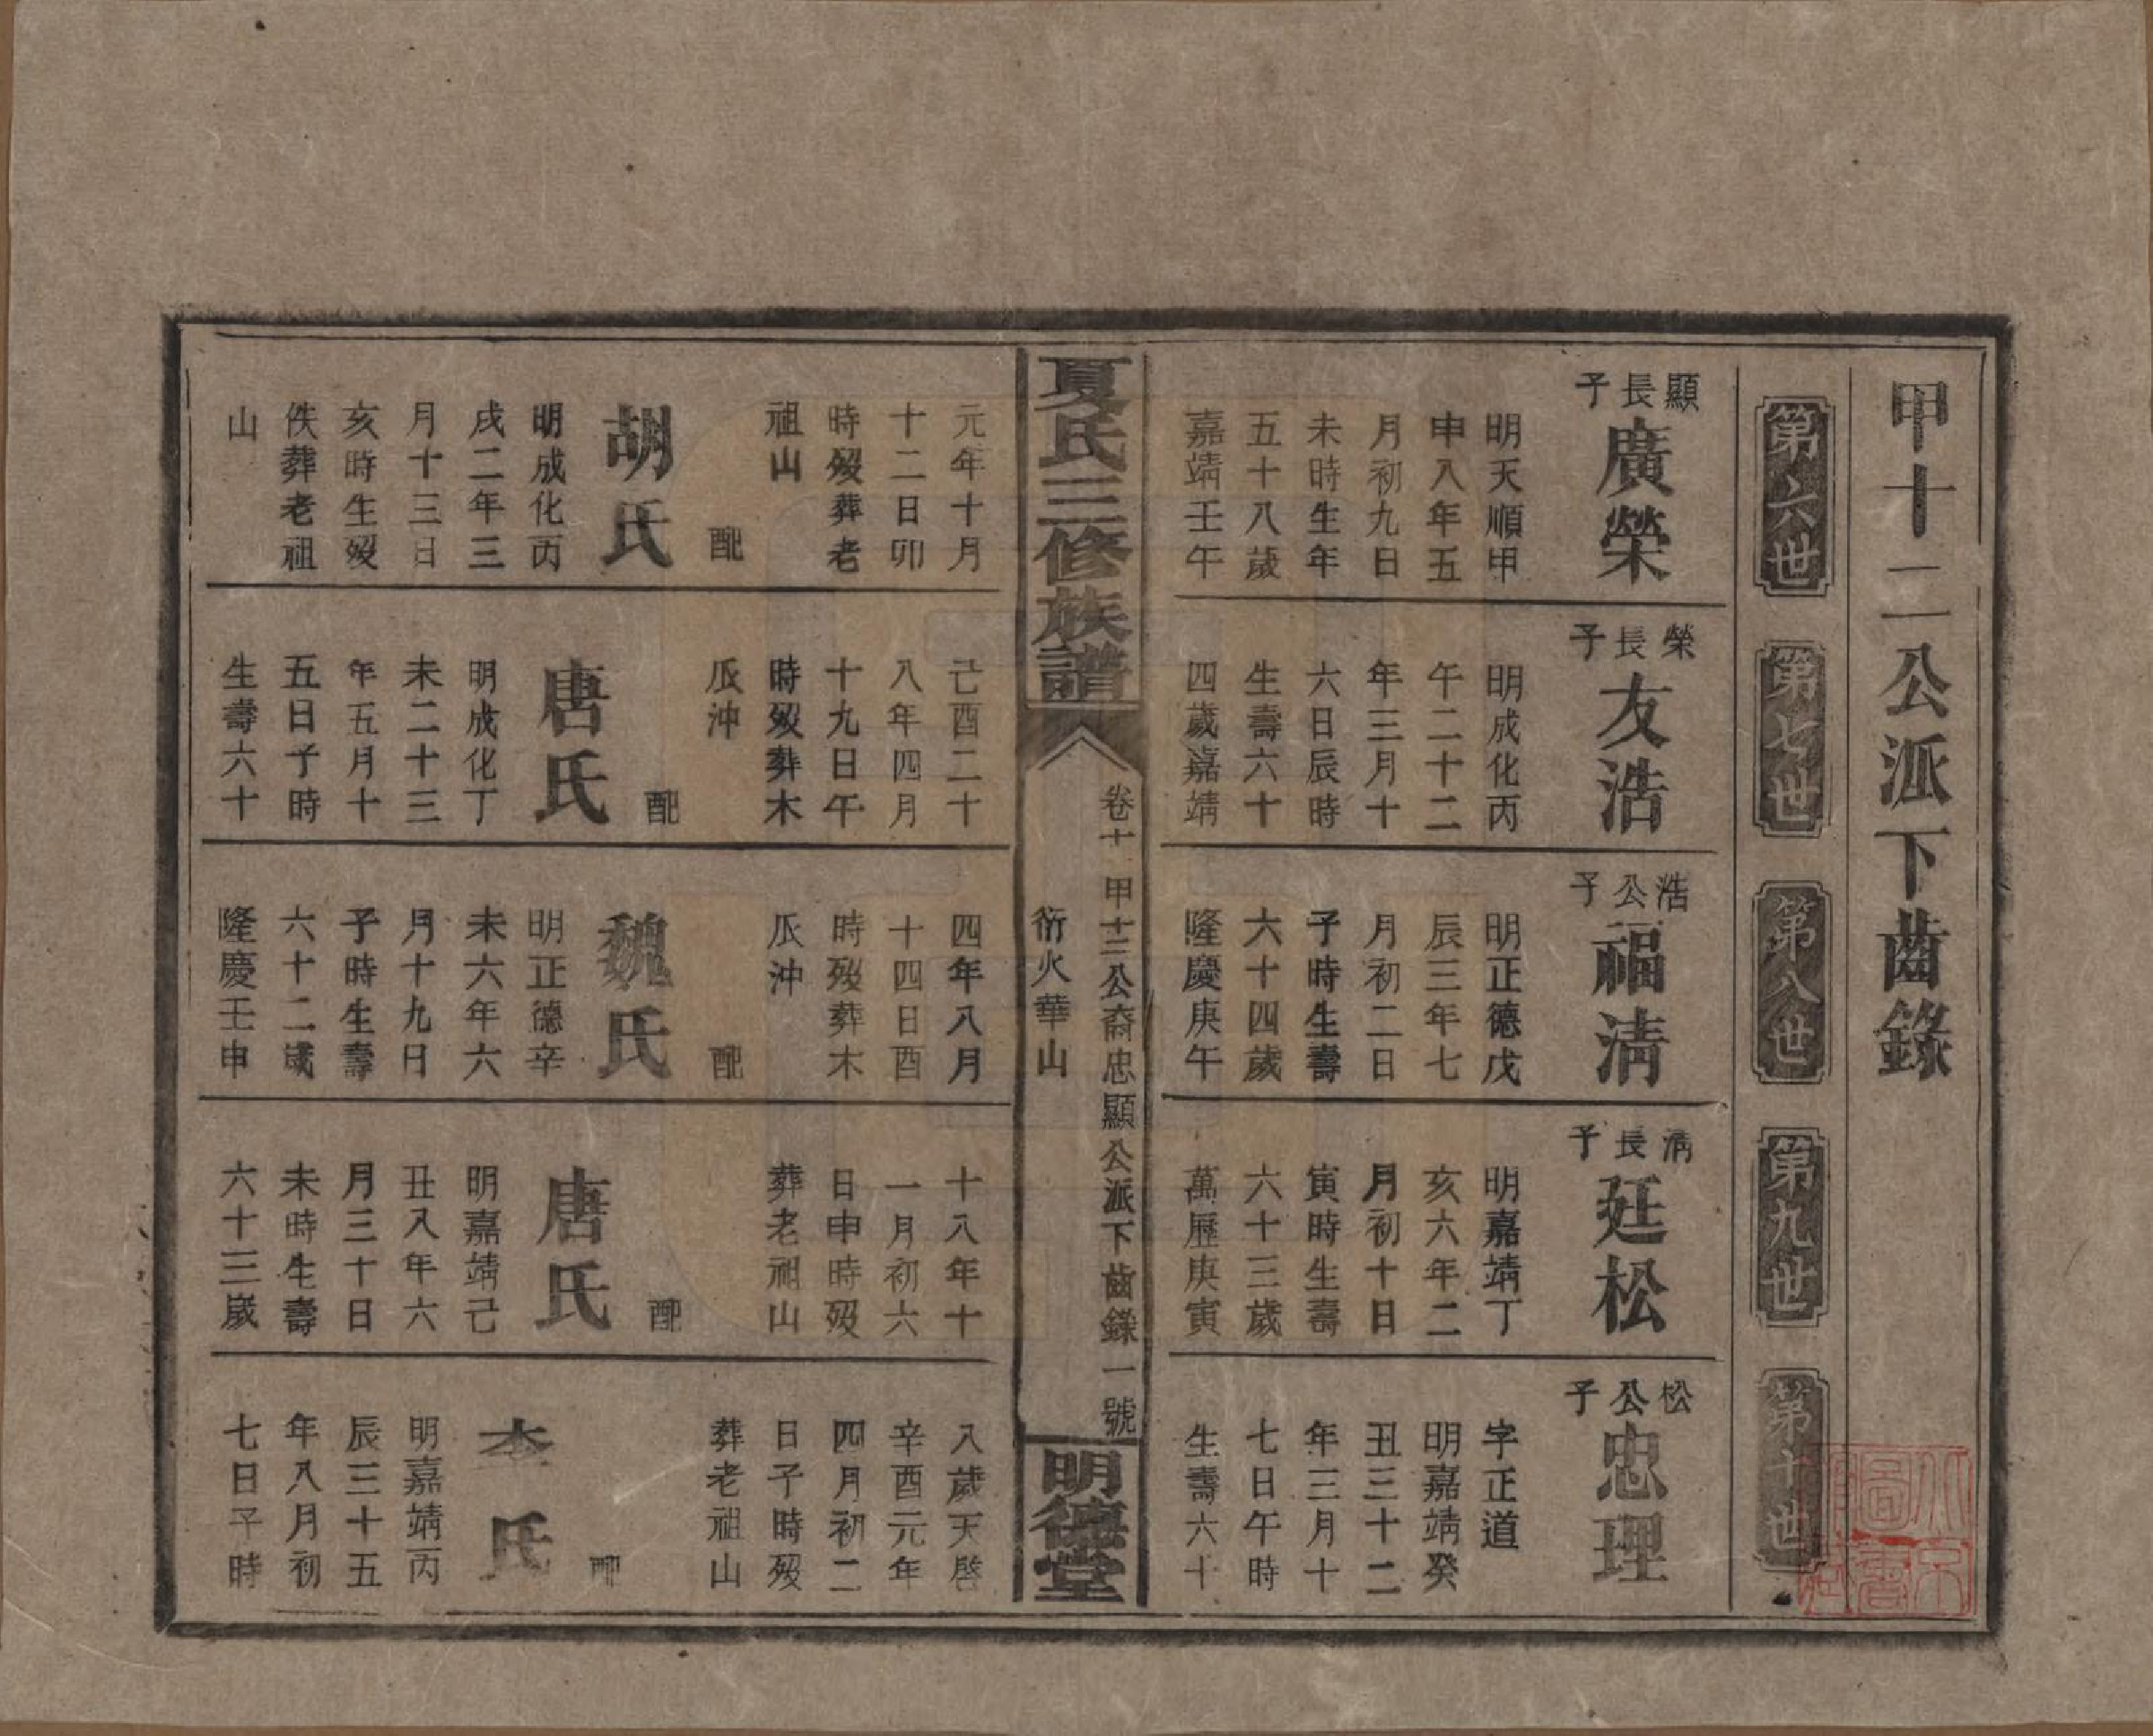 甲十二公派下齒錄
第六世
第七世
第八世
第九世
第十世
顯長子
廣榮
明天順甲
申八年五
月初九日
未時生年
五十八歲
嘉靖壬午
元年十月
十二日卯
時歿葬老
祖山
配
胡氏
明成化丙
戌二年三
月十三日
亥時生歿
佚葬老祖
山
榮長子
友浩
明成化丙
午二十二
年三月十
六日辰時
生壽六十
四歲嘉靖
己酉二十
八年四月
十九日午
時歿葬木
瓜沖
配
唐氏
明成化丁
未二十三
年五月十
五日子時
生壽六十
浩公子
福淸
明正德戊
辰三年七
月初二日
子時生壽
六十四歲
隆慶庚午
四年八月
十四日酉
時歿葬木
瓜沖
配
魏氏
明正德辛
未六年六
月十九日
子時生壽
六十二歲
隆慶壬申
淸長子
廷松
明嘉靖丁
亥六年二
月初十日
寅時生壽
六十三歲
萬歷庚寅
十八年十
一月初六
日申時歿
葬老祖山
配
唐氏
明嘉靖己
丑八年六
月三十日
未時生壽
六十三歲
松公子
忠理
字正道
明嘉靖癸
丑三十二
年三月十
七日午時
生壽六十
八歲天啓
辛酉元年
四月初二
日子時歿
葬老祖山
配
李氏
明嘉靖丙
辰三十五
年八月初
七日子時
夏氏三修族譜
卷十
甲十二公裔忠顯公派下齒錄一號
衍火華山
明德堂